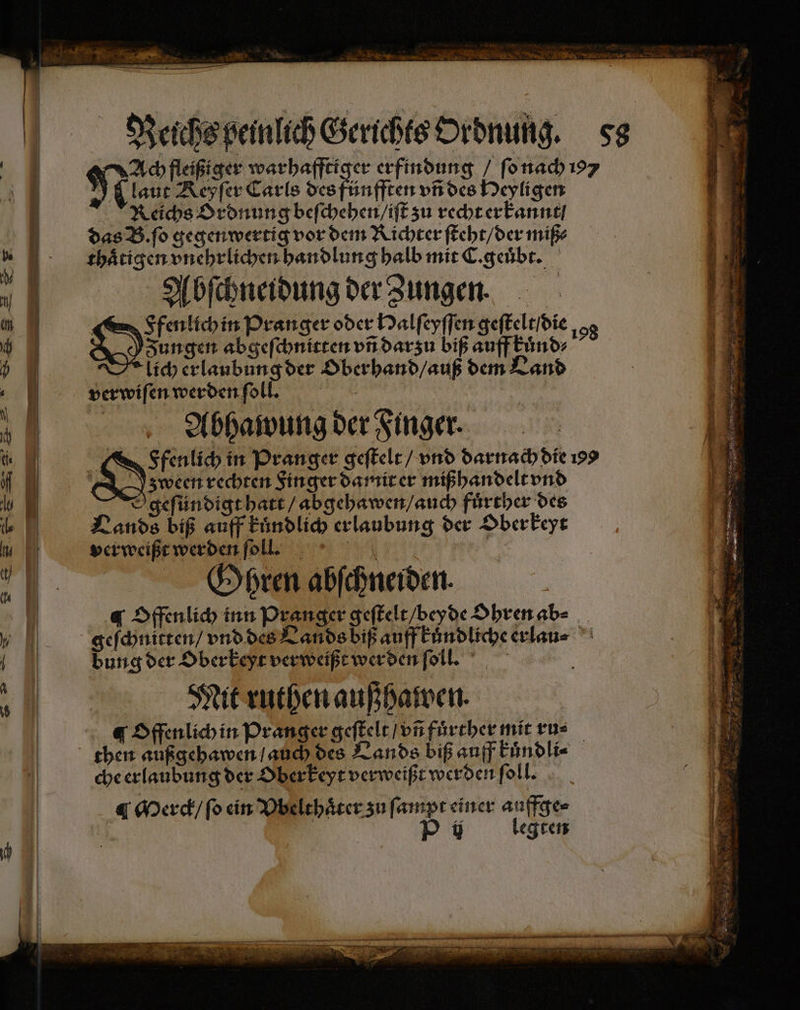 Reichs peinlich Gerichts Ordnung. 58
NAch fleißiger warhafftiger erfindung / ſo nach 197
laut Keyſer Carls des fünfften vñ des Heyligen
Reichs Ordnung beſchehen/iſt zu recht erkannt/
das B.ſo gegenwertig vor dem Richter ſteht/der miß⸗
thåtigen vnehrlichen handlung halb mit C.geůbt.
Abſchneidung der Zungen.
OFfenlich in Pranger oder Halſeyſſen geſtelt/die 198
Zungen abgeſchnitten vñ darzu biß auff kůnd⸗
lich erlaubung der Oberhand/auß dem Land
verwiſen werden ſoll.
Abhawung der Finger.
OFfenlich in Pranger geſtelt / vnd darnach die 199
zween rechten Finger damit er mißhandelt vnd
geſündigt hatt / abgehawen/auch fůrther des
Lands biß auff kůndlich erlaubung der Oberkeyt
verweißt werden ſoll.
Ohren abſchneiden.
¶ Offenlich inn Pranger geſtelt/beyde Ohren ab⸗
geſchnitten/ vnd des Lands biß auff kůndliche erlau⸗
bung der Oberkeyt verweißt werden ſoll.
Mit ruthen außhawen.
¶ Offenlich in Pranger geſtelt / vñ fůrther mit ru⸗
then außgehawen / auch des Lands biß auff kůndli⸗
che erlaubung der Oberkeyt verweißt werden ſoll.
¶ Merck/ ſo ein Vbelthåter zu ſampt einer auffge⸗
P ij legten